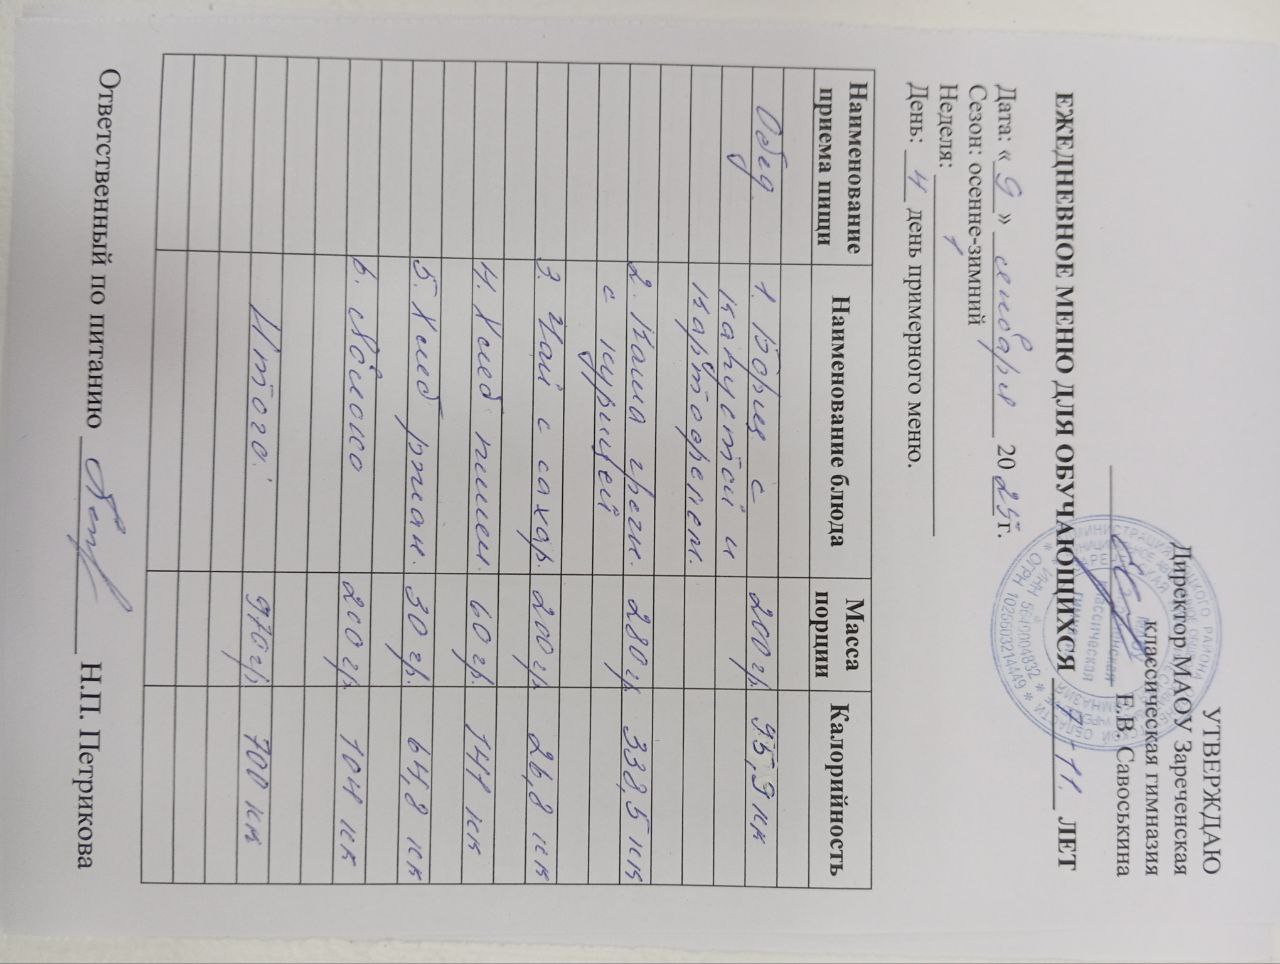 УТВЕРЖДАЮ
Директор МАОУ Зареченская
классическая гимназия
Е.В. Савоськина
ЕЖЕДНЕВНОЕ МЕНЮ ДЛЯ ОБУЧАЮЩИХСЯ 7-11. ЛЕТ
Дата: « 9 » сентября 2025 г.
Сезон: осенне-зимний
Неделя: 1
День: 4 день примерного меню.
Наименование приема пищи Наименование блюда Масса порции Калорийность
Обед 1. Борщ с 200 гр 95,9 кк
капустой и
картофелем.
2. Каша гречн. 280 гр 338,5 кк
с курицей
3. Чай с сахар. 200 гр 26,8 кк
4. Хлеб пшен. 60 гр. 141 кк
5. Хлеб ржан. 30 гр. 64,8 кк
6. Яблоко 200 гр. 104 кк
Итого: 970 гр. 700 кк
Ответственный по питанию Н.П. Петрикова